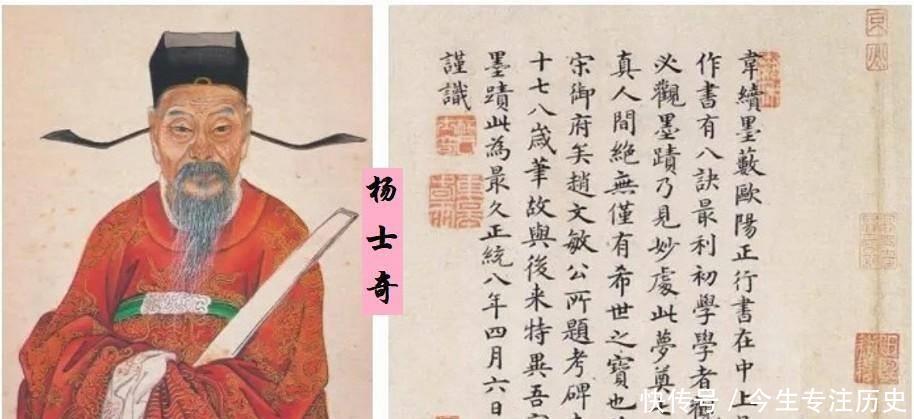 杨士奇
韋續墨藪歐陽正行書在中上
作書有八訣最利初學學者
必觀墨蹟乃見妙處此夢奠
真人間絶無僅有希世之寶也
宋御府矣趙文敏公所題考碑
十七八歲筆故與後来特異吾
墨蹟此為最久正統八年四月六日
謹識
快传号/今生专注历史